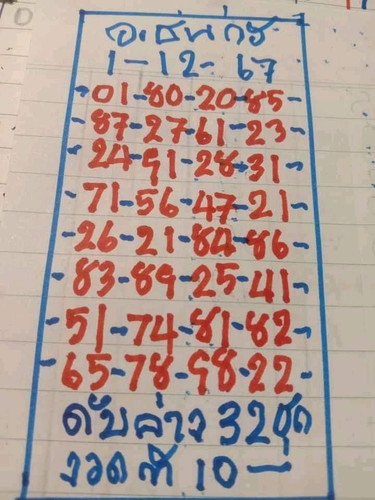 อ.ธนกร
1-12-67
-01-80-20-85-
-87-27-61-23-
-24-91-28-31-
-71-56-47-21-
-26-21-84-86-
-83-89-25-41-
-51-74-81-82-
-65-78-98-22-
ดับล่าง 32ชุด
งวดที่ 10-